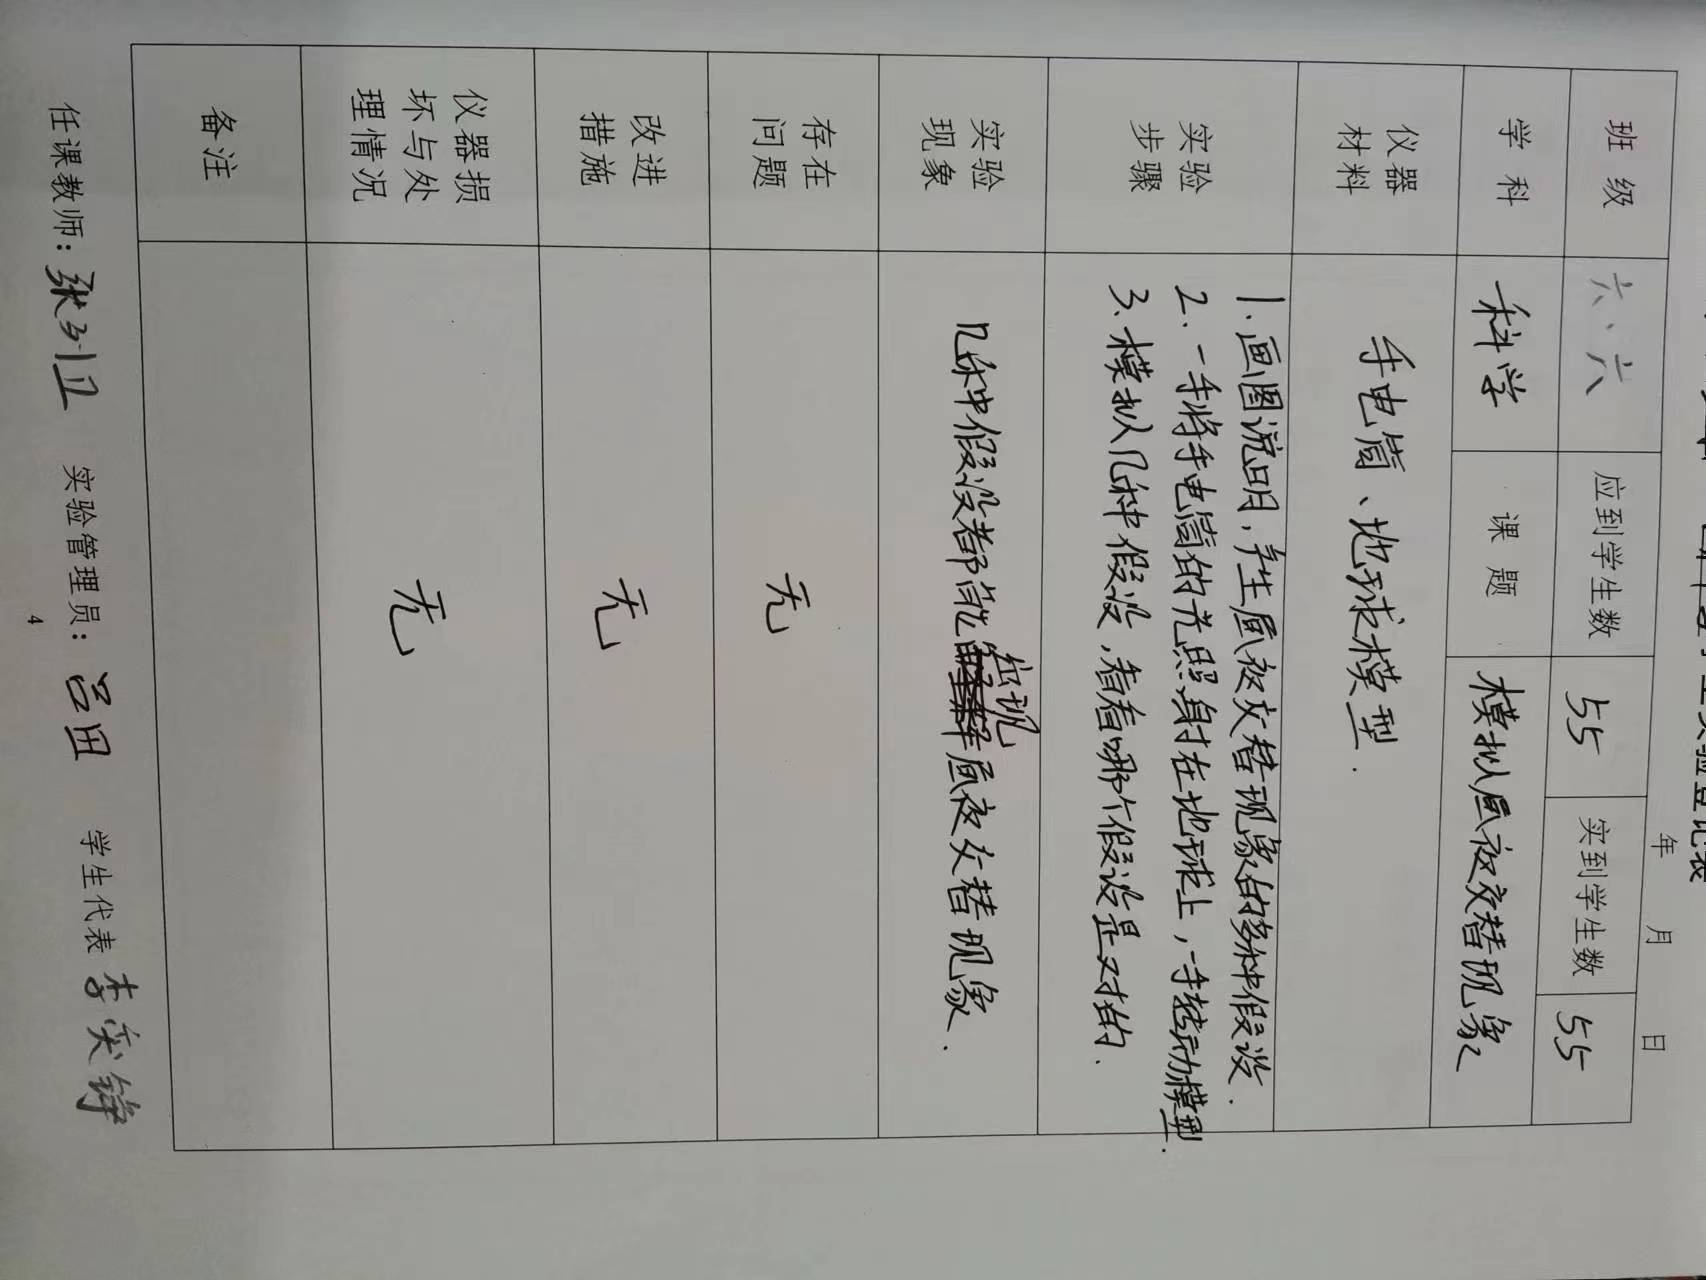 学生实验登记表
年 月 日
班 级 六、六 应到学生数 55 实到学生数 55
学 科 科学 课 题 模拟昼夜交替现象
仪器
材料
手电筒、地球模型.
实验
步骤
1.画图说明,产生昼夜交替现象的多种假设.
2.一手将手电筒的光照射在地球上,一手转动模型.
3.模拟几种假设,看看哪个假设是对的.
实验
现象
几种假设都能出现昼夜交替现象.
存在
问题
无
改进
措施
无
仪器损
坏与处
理情况
无
备注
任课教师: 张 卫 实验管理员: 吕田 学生代表 李奕铮
4